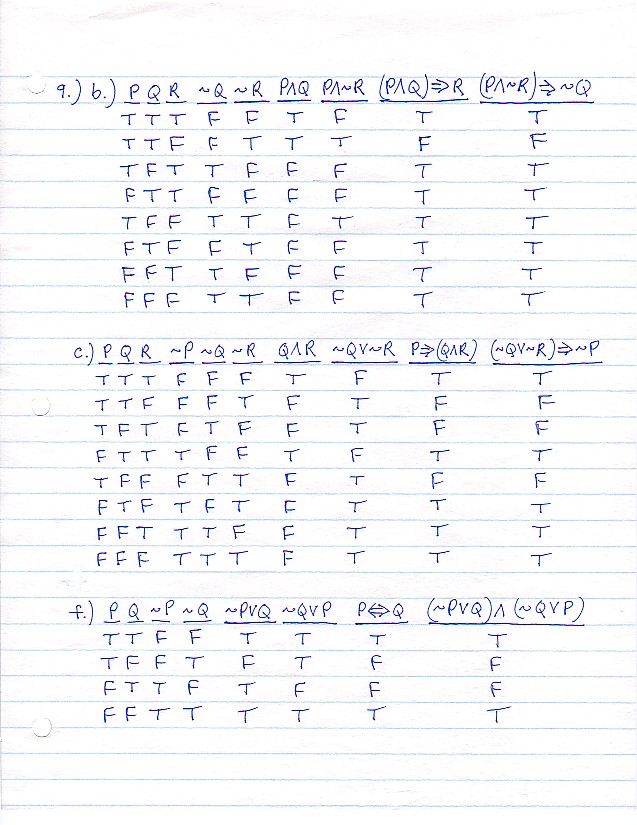 9.) b.) P Q R ~Q ~R P∧Q P∧~R (P∧Q)⇒R (P∧~R)⇒~Q
T T T F F T F T T
T T F F T T T F F
T F T T F F F T T
F T T F F F F T T
T F F T T F T T T
F T F F T F F T T
F F T T F F F T T
F F F T T F F T T
c.) P Q R ~P ~Q ~R Q∧R ~Q∨~R P⇒(Q∧R) (~Q∨~R)⇒~P
T T T F F F T F T T
T T F F F T F T F F
T F T F T F F T F F
F T T T F F T F T T
T F F F T T F T F F
F T F T F T F T T T
F F T T T F F T T T
F F F T T T F T T T
f.) P Q ~P ~Q ~P∨Q ~Q∨P P⇔Q (~P∨Q)∧(~Q∨P)
T T F F T T T T
T F F T F T F F
F T T F T F F F
F F T T T T T T